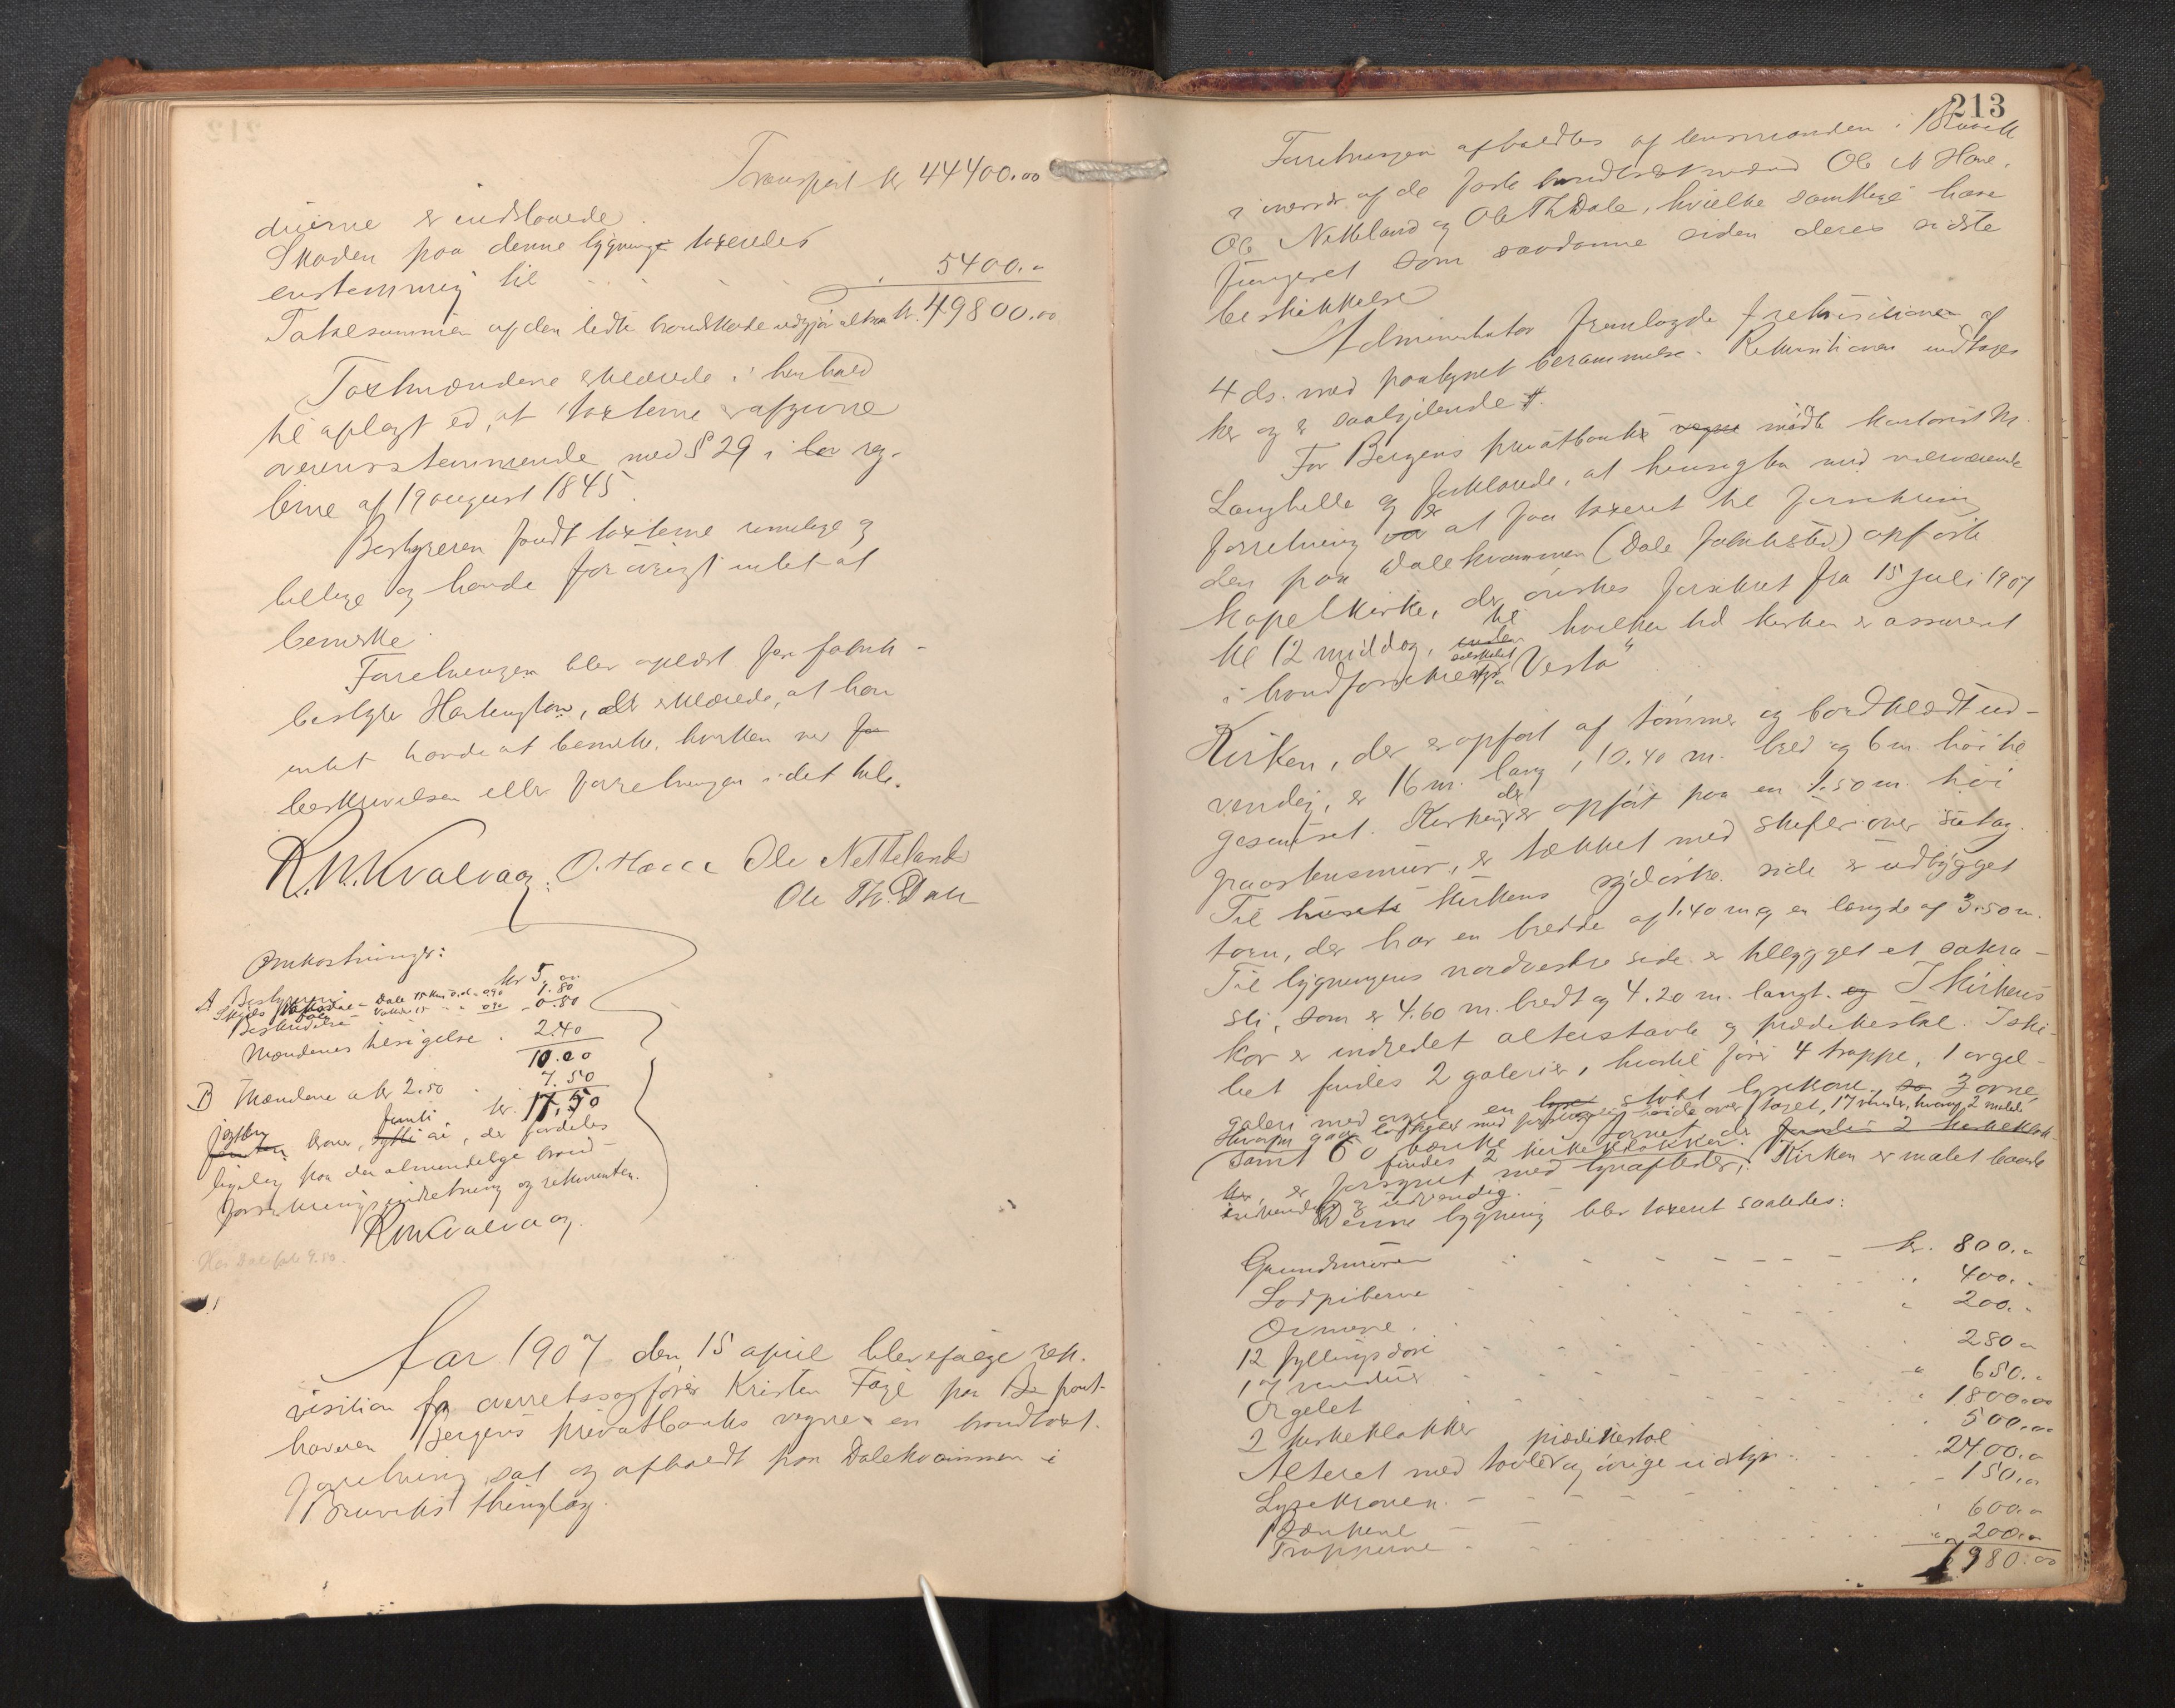 Transport kr 44400.00
dørerne er indslaaede.
Skaden paa denne bygning taxeredes
enstemmig til . . . . 5400.-
Taxtsummen af den ledte brandskade udgjør altsaa kr. 49800.00
Taxtmændene erklærede i henhold
til aflagt ed, at taxterne er afgivne
overensstemmende med § 29 i lov reg-
lerne af 19 august 1845.
Bestyreren fandt taxterne rimelige og
billige og havde forøvrigt intet at
bemerke.
Forretningen blev oplæst for fabrik-
bestyrer Harlington, der erklærede, at han
intet havde at bemerke, hverken ved for
beskrivelsen eller forretningen i det hele.
R. M. Kvalvaag. O. Hove Ole Netteland
Ole Th. Dale
Omkostninger:
A Bestyreren kr 5,00
Skyds Vaksdal - Dale 15 km - 1.80
Beskrivelse 0.80
Mændenes tilsigelse . 2.40
10.00
B Mændene a kr 2.50 . 7.50
kr. 17,50
sytten kroner, femti øre, der fordeles
ligelig paa den almindelige brand-
forsikringsindretning og rekvirenten.
R M Kvalvaag.
Hos Dale fab 9.50.
Aar 1907 den 15 april blev ifølge rek-
visition fra overretssagfører Kristen Faye paa Be pant-
haveren Bergens privatbanks vegne en brandtaxt-
forretning sat og afholdt paa Dalekvammen i
Bruviks thinglag.
213
Forretningen afholdtes af lensmanden i Bruvik
i nærvær af de faste brandtaxtmænd Ole N Hove,
Ole Netteland og Ole Th Dale, hvilke samtlige have
fungeret som saadanne siden deres sidste
beskikkelse
Administrator fremlagde 1 rekvisitionen af
4 ds. med paategnet berammelse. Rekvisitionen indtages
her og er saalydende #.
For Bergens privatbank vegne mødte kontorist M.
Langhelle og forklarede, at hensigten med nærværende
forretning var er at faa taxeret til forsikring
den paa Dalekvammen (Dale Fabriksted) opførte
kapelkirke, der ønskes forsikret fra 15 juli 1907
kl 12 middag, under til hvilken tid kirken er assureret
i brandforsikringsselskabet "Vesta"
Kirken, der er opført af tømmer og bordklædt ud-
vendig, er 16 m. lang, 10.40 m. bred og 6 m. høi til
gesimset. Kirken, der er opført paa en 1.50 m. høi
graastensmur, er tækket med skifer over sutag.
Til husets kirkens sydøstre side er udbygget
torn, der har en bredde af 1.40 m og en længde af 3.50 m.
Til bygningens nordvestre side er tilbygget et sakra-
sti, som er 4.60 m. bredt og 4.20 m. langt. og I kirkens
kor er indredet altertavle og prædikestol. I ski-
bet findes 2 gallerier, hvortil fører 4 trappe, 1 orgel-
galeri med orgel, en lyse støbt lysekrone, so 3 ovne,
hvorfra gaar over taget, 17 vinduer, hvoraf 2 malede
samt 60 bænke. I tornet, der findes 2 kirkeklok
findes 2 kirkeklokker.
ker, er forsynet med lynafleder. Kirken er malet baade
indvendig og udvendig.
Denne bygning blev taxeret saaledes:
Grundmuren kr. 800.-
Lodpiberne " 400.-
Ovnene " 200.-
12 fyllingsdøre 280.-
17 vinduer " 650.-
Orgelet " 1800.00
2 kirkeklokker 500.00
Alteret med tavle, prædikestol og øvrige udstyr 2400.-
Lysekronen - 150.00
Bænkene " 600.-
Trapperne " 200.-
980.00